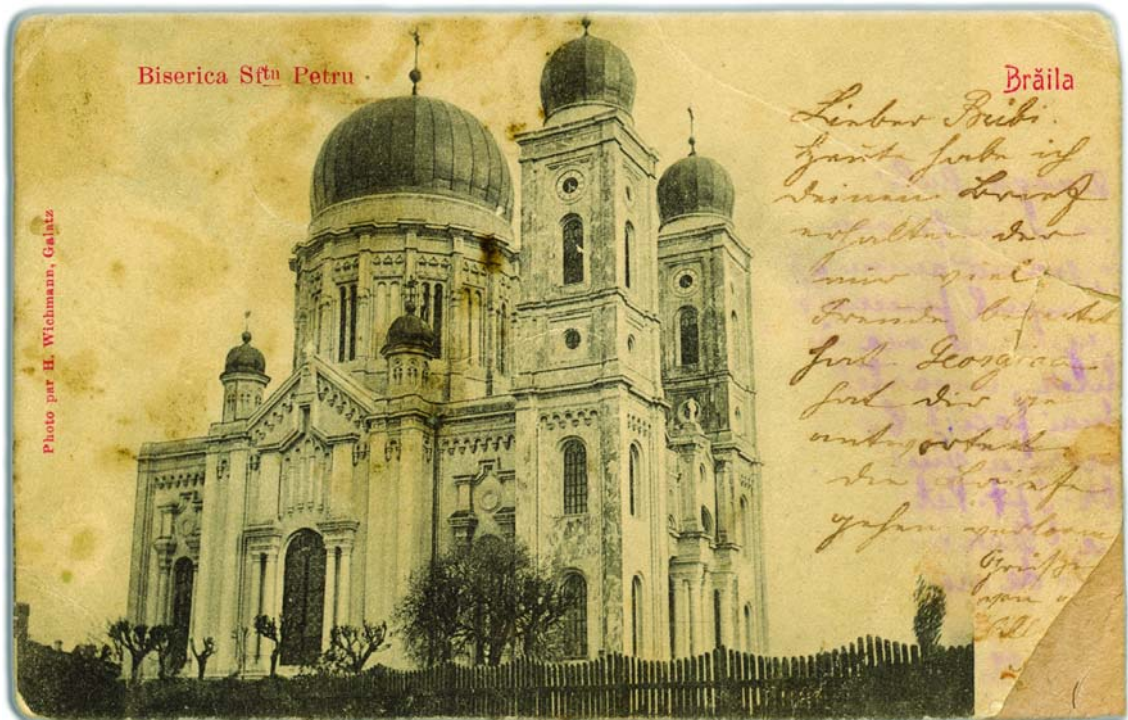 Biserica Sftu Petru
Brăila
Photo par H. Wichmann, Galatz
Lieber Bubi.
Heut habe ich
deinen Brief
erhalten der
mir viel
Freude bereitet
hat. Georgina
hat dir ge
antwortet
die Briefe
gehen verloren
Grüße
von